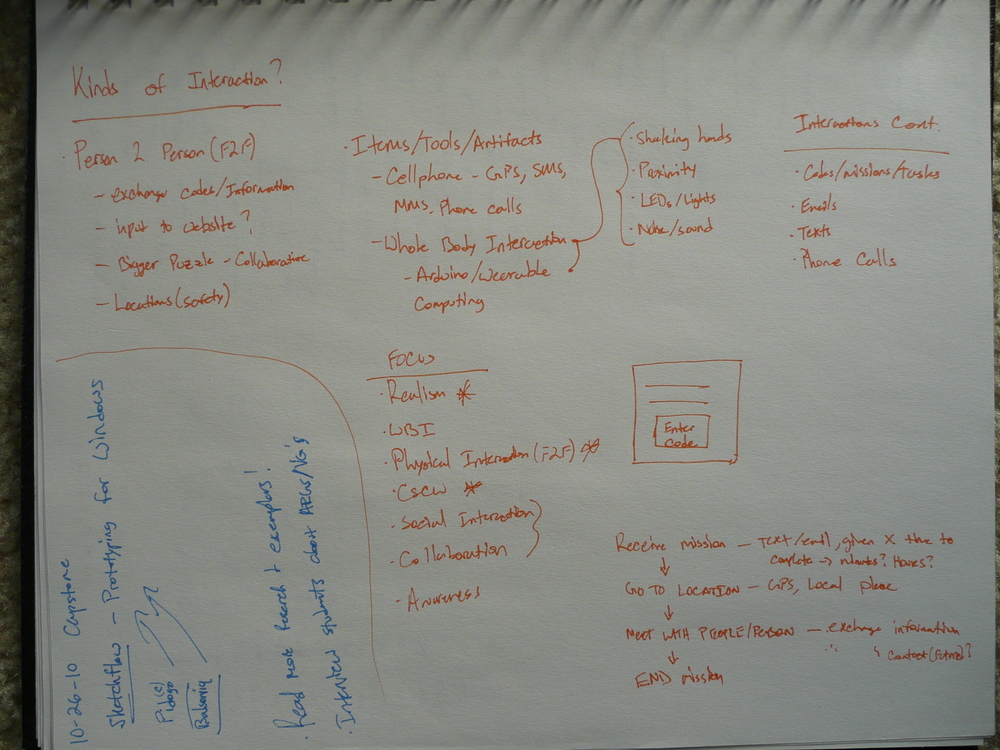 Kinds of Interaction?
· Person 2 Person (F2F)
- exchange codes/Information
- input to website?
- Bigger Puzzle - Collaborative
- Locations (safety)
· Items/Tools/Artifacts
- Cellphone - GPS, SMS,
MMS, Phone calls
- Whole Body Interaction
- Arduino/Wearable
Computing
· Shaking hands
· Proximity
· LEDs/Lights
· Noise/sound
Interactions Cont.
· Codes/missions/tasks
· Emails
· Texts
· Phone Calls
FOCUS
· Realism *
· WBI
· Physical Interaction (F2F) *
· CSCW *
· Social Interaction
· Collaboration
- Awareness
Enter
Code
Receive mission - Text/email, given X time to
complete → minutes? Hours?
↓
GO TO LOCATION - GPS, Local place
↓
MEET WITH PEOPLE/PERSON - exchange information
↳ contact (future)?
↓
END mission
10-26-10 Capstone
Sketchflow - Prototyping for Windows
Balsamiq
· Read more Research & exemplars!
· Interview students about ARGs/VG's